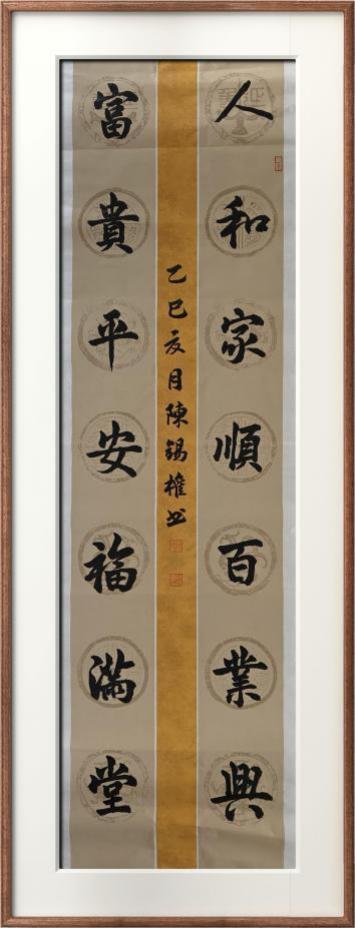 人和家順百業興
富貴平安福滿堂
乙巳亥月陳錫權书